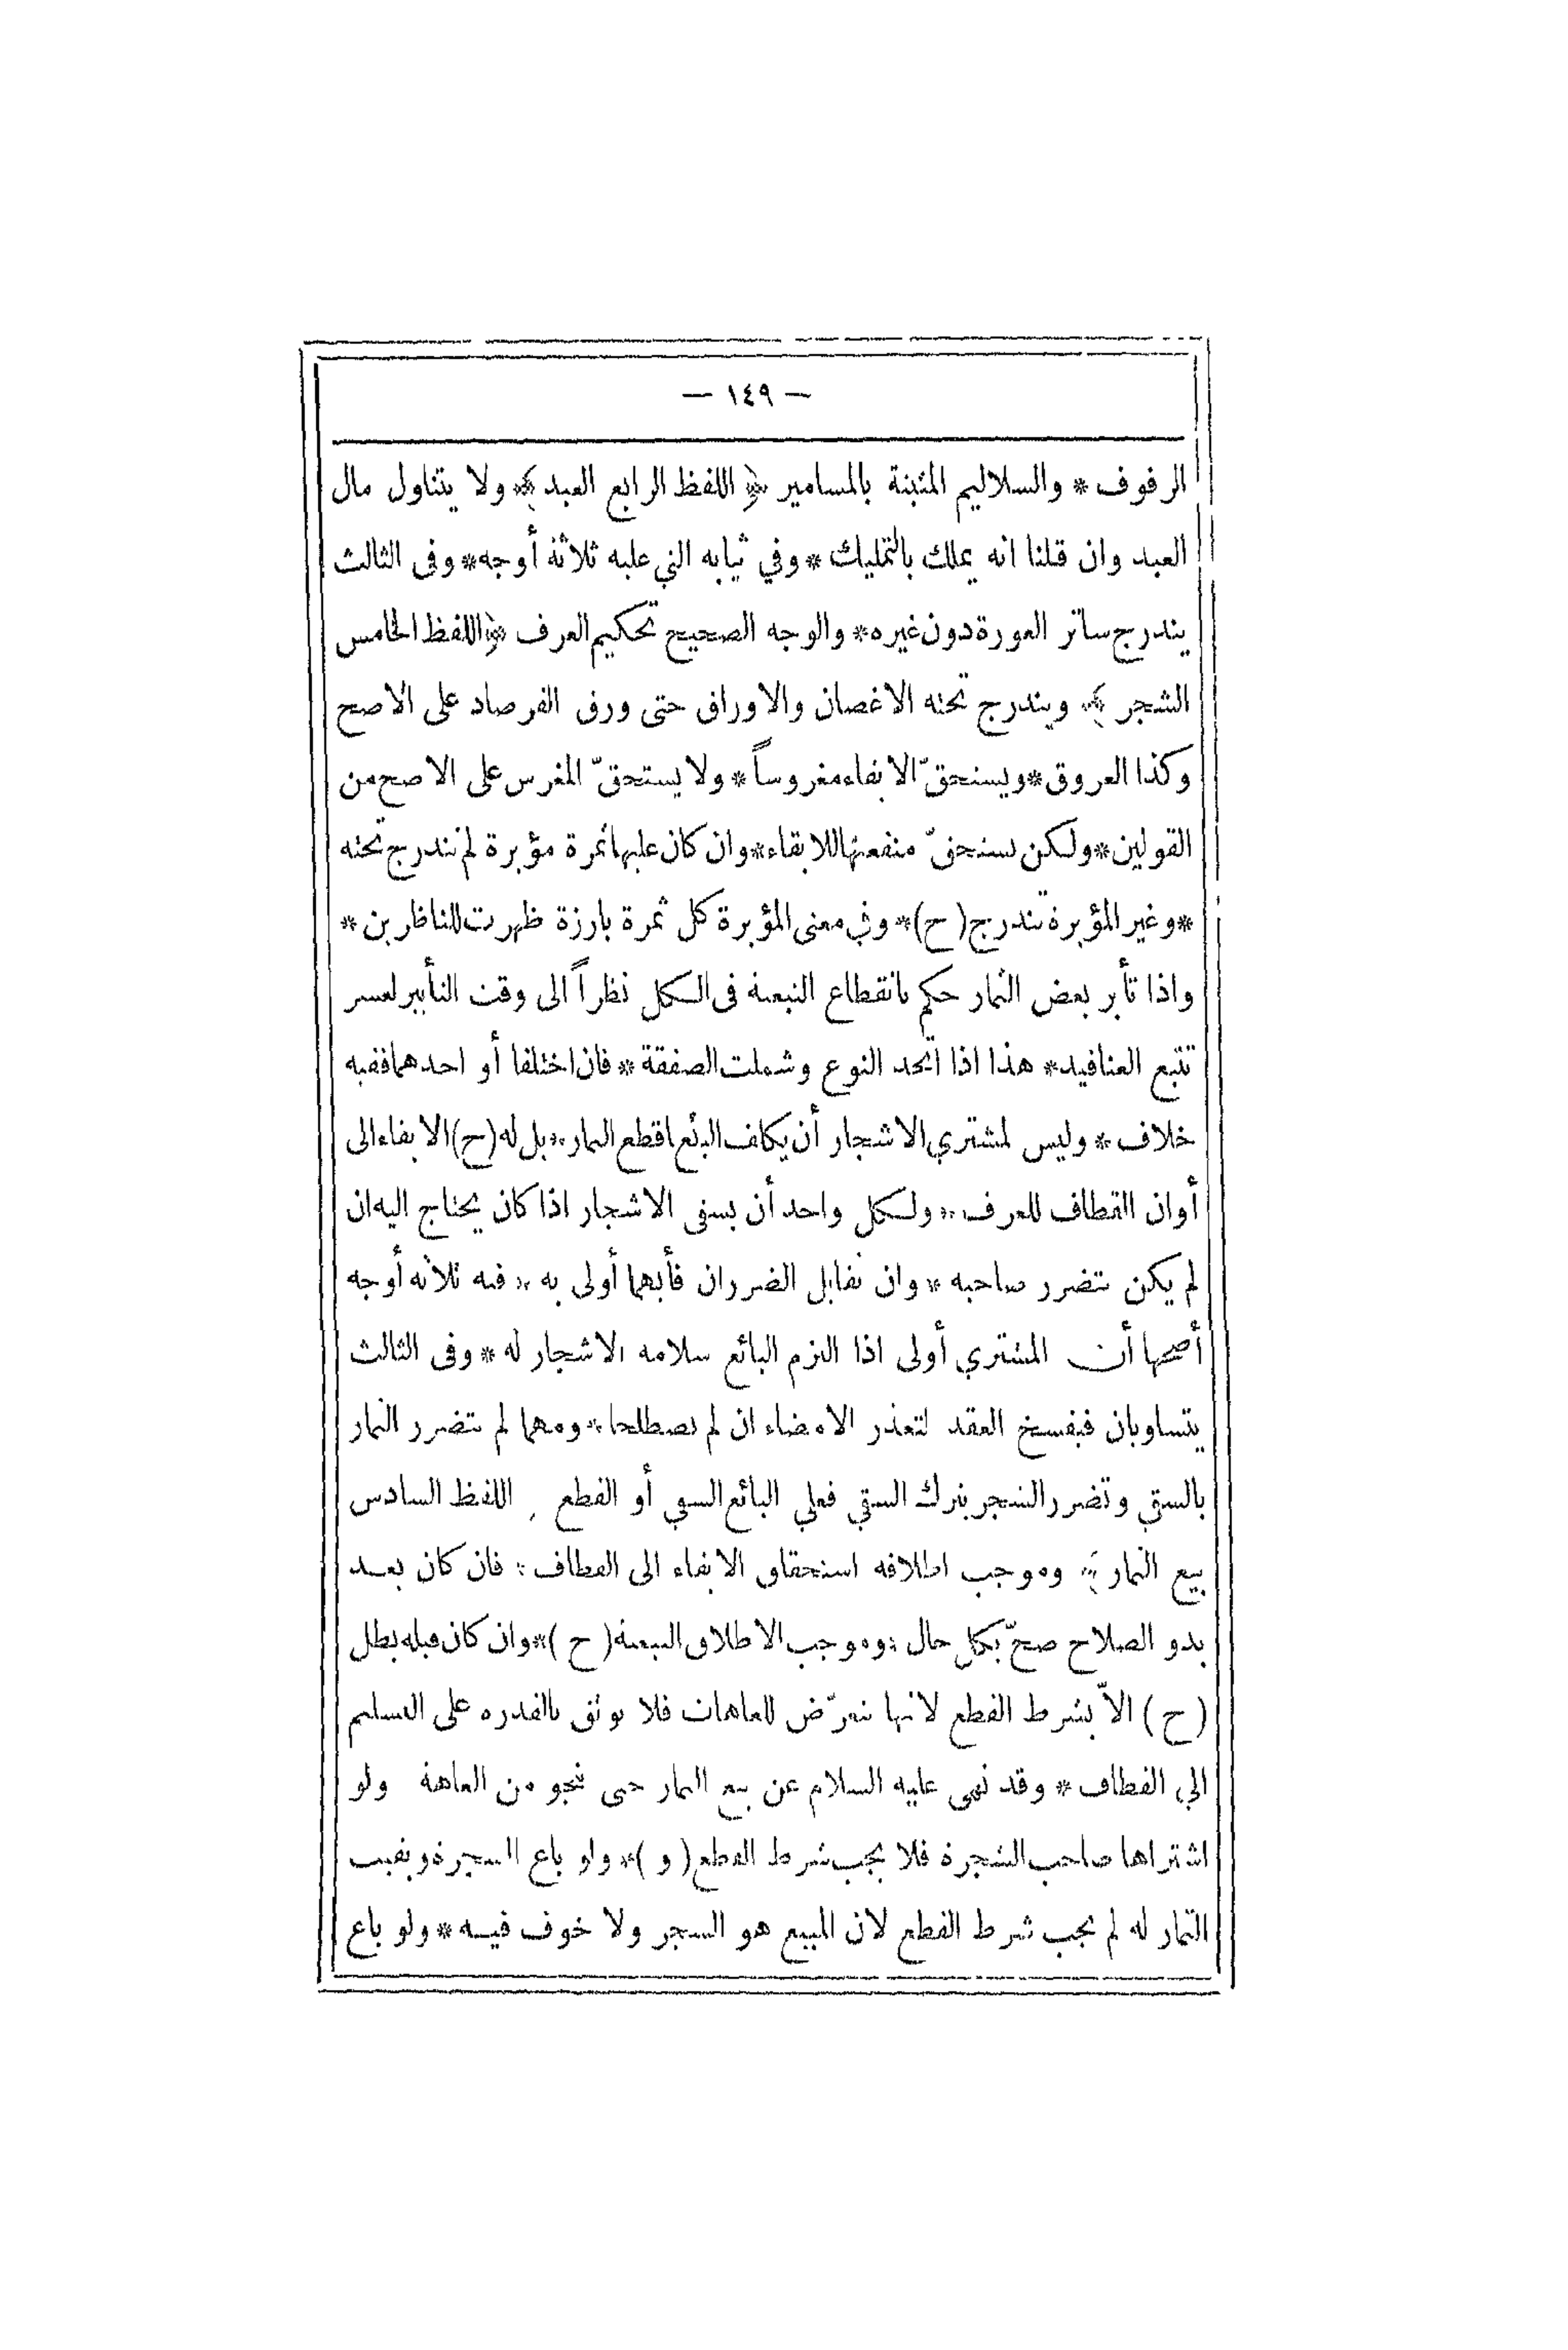 — ١٤٩ —
الرفوف * والسلاليم المثبتة بالمسامير ﴿ اللفظ الرابع العبد ﴾ ولا يتناول مال
العبد وان قلنا انه يملك بالتمليك * وفي ثيابه التي عليه ثلاثة أوجه * وفى الثالث
يندرج ساتر العورة دون غيره * والوجه الصحيح تحكيم العرف ﴿ اللفظ الخامس
الشجر ﴾ ويندرج تحته الاغصان والاوراق حتى ورق الفرصاد على الاصح
وكذا العروق * ويستحقّ الابقاء مغروساً * ولا يستحقّ المغرس على الاصح من
القولين * ولكن يستحقّ منفعتها للابقاء * وان كان عليها ثمرة مؤبرة لم تندرج تحته
* وغير المؤبرة تندرج ( ح ) * وفي معنى المؤبرة كل ثمرة بارزة ظهرت للناظرين *
واذا تأبر بعض الثمار حكم بانقطاع التبعية فى الكل نظراً الى وقت التأبير لعسر
تتبع العناقيد * هذا اذا اتحد النوع وشملت الصفقة * فان اختلفا أو احدهما ففيه
خلاف * وليس لمشتري الاشجار أن يكلف البائع قطع الثمار * بل له ( ح ) الابقاء الى
أوان القطاف للعرف * ولكل واحد أن يسقى الاشجار اذا كان يحتاج اليه ان
لم يكن يتضرر صاحبه * وان تقابل الضرران فأيهما أولى به * فيه ثلاثة أوجه
أصحها أن المشتري أولى اذا التزم البائع سلامة الاشجار له * وفى الثالث
يتساويان فيفسخ العقد لتعذر الامضاء ان لم يصطلحا * ومهما لم يتضرر الثمار
بالسقي وتضرر الشجر بترك السقي فعلي البائع السقي أو القطع اللفظ السادس
بيع الثمار ﴾ وموجب اطلاقه استحقاق الابقاء الى القطاف * فان كان بعد
بدو الصلاح صحّ بكل حال * وموجب الاطلاق التبعية ( ح ) * وان كان قبله بطل
( ح ) الاّ بشرط القطع لانها تتعرّض للعاهات فلا يوثق بالقدرة على التسليم
الي القطاف * وقد نهى عليه السلام عن بيع الثمار حتى تنجو من العاهة ولو
اشتراها صاحب الشجرة فلا يجب شرط القطع ( و ) * ولو باع الشجرة وبقيت
الثمار له لم يجب شرط القطع لان المبيع هو الشجر ولا خوف فيه * ولو باع